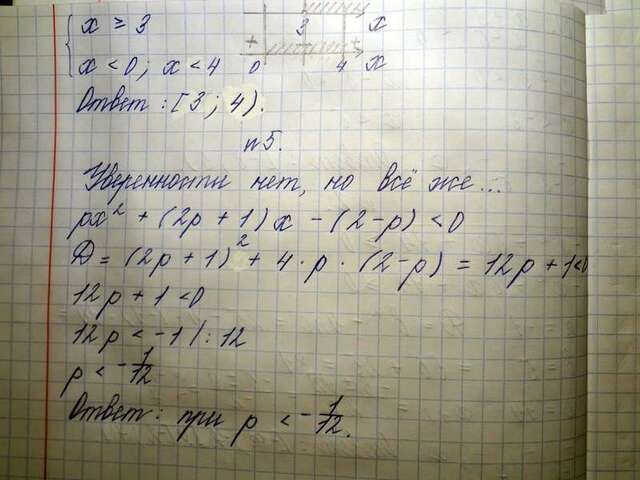 { x ≥ 3 3 x
x < 0; x < 4 + 0 4 + x
Ответ: [3; 4).
n 5.
Уверенности нет, но всё же...
px² + (2p + 1)x - (2-p) < 0
D = (2p + 1)² + 4 · p · (2-p) = 12p + 1 < 0
12p + 1 < 0
12p < -1 | : 12
p < -1/12
Ответ: при p < -1/12.